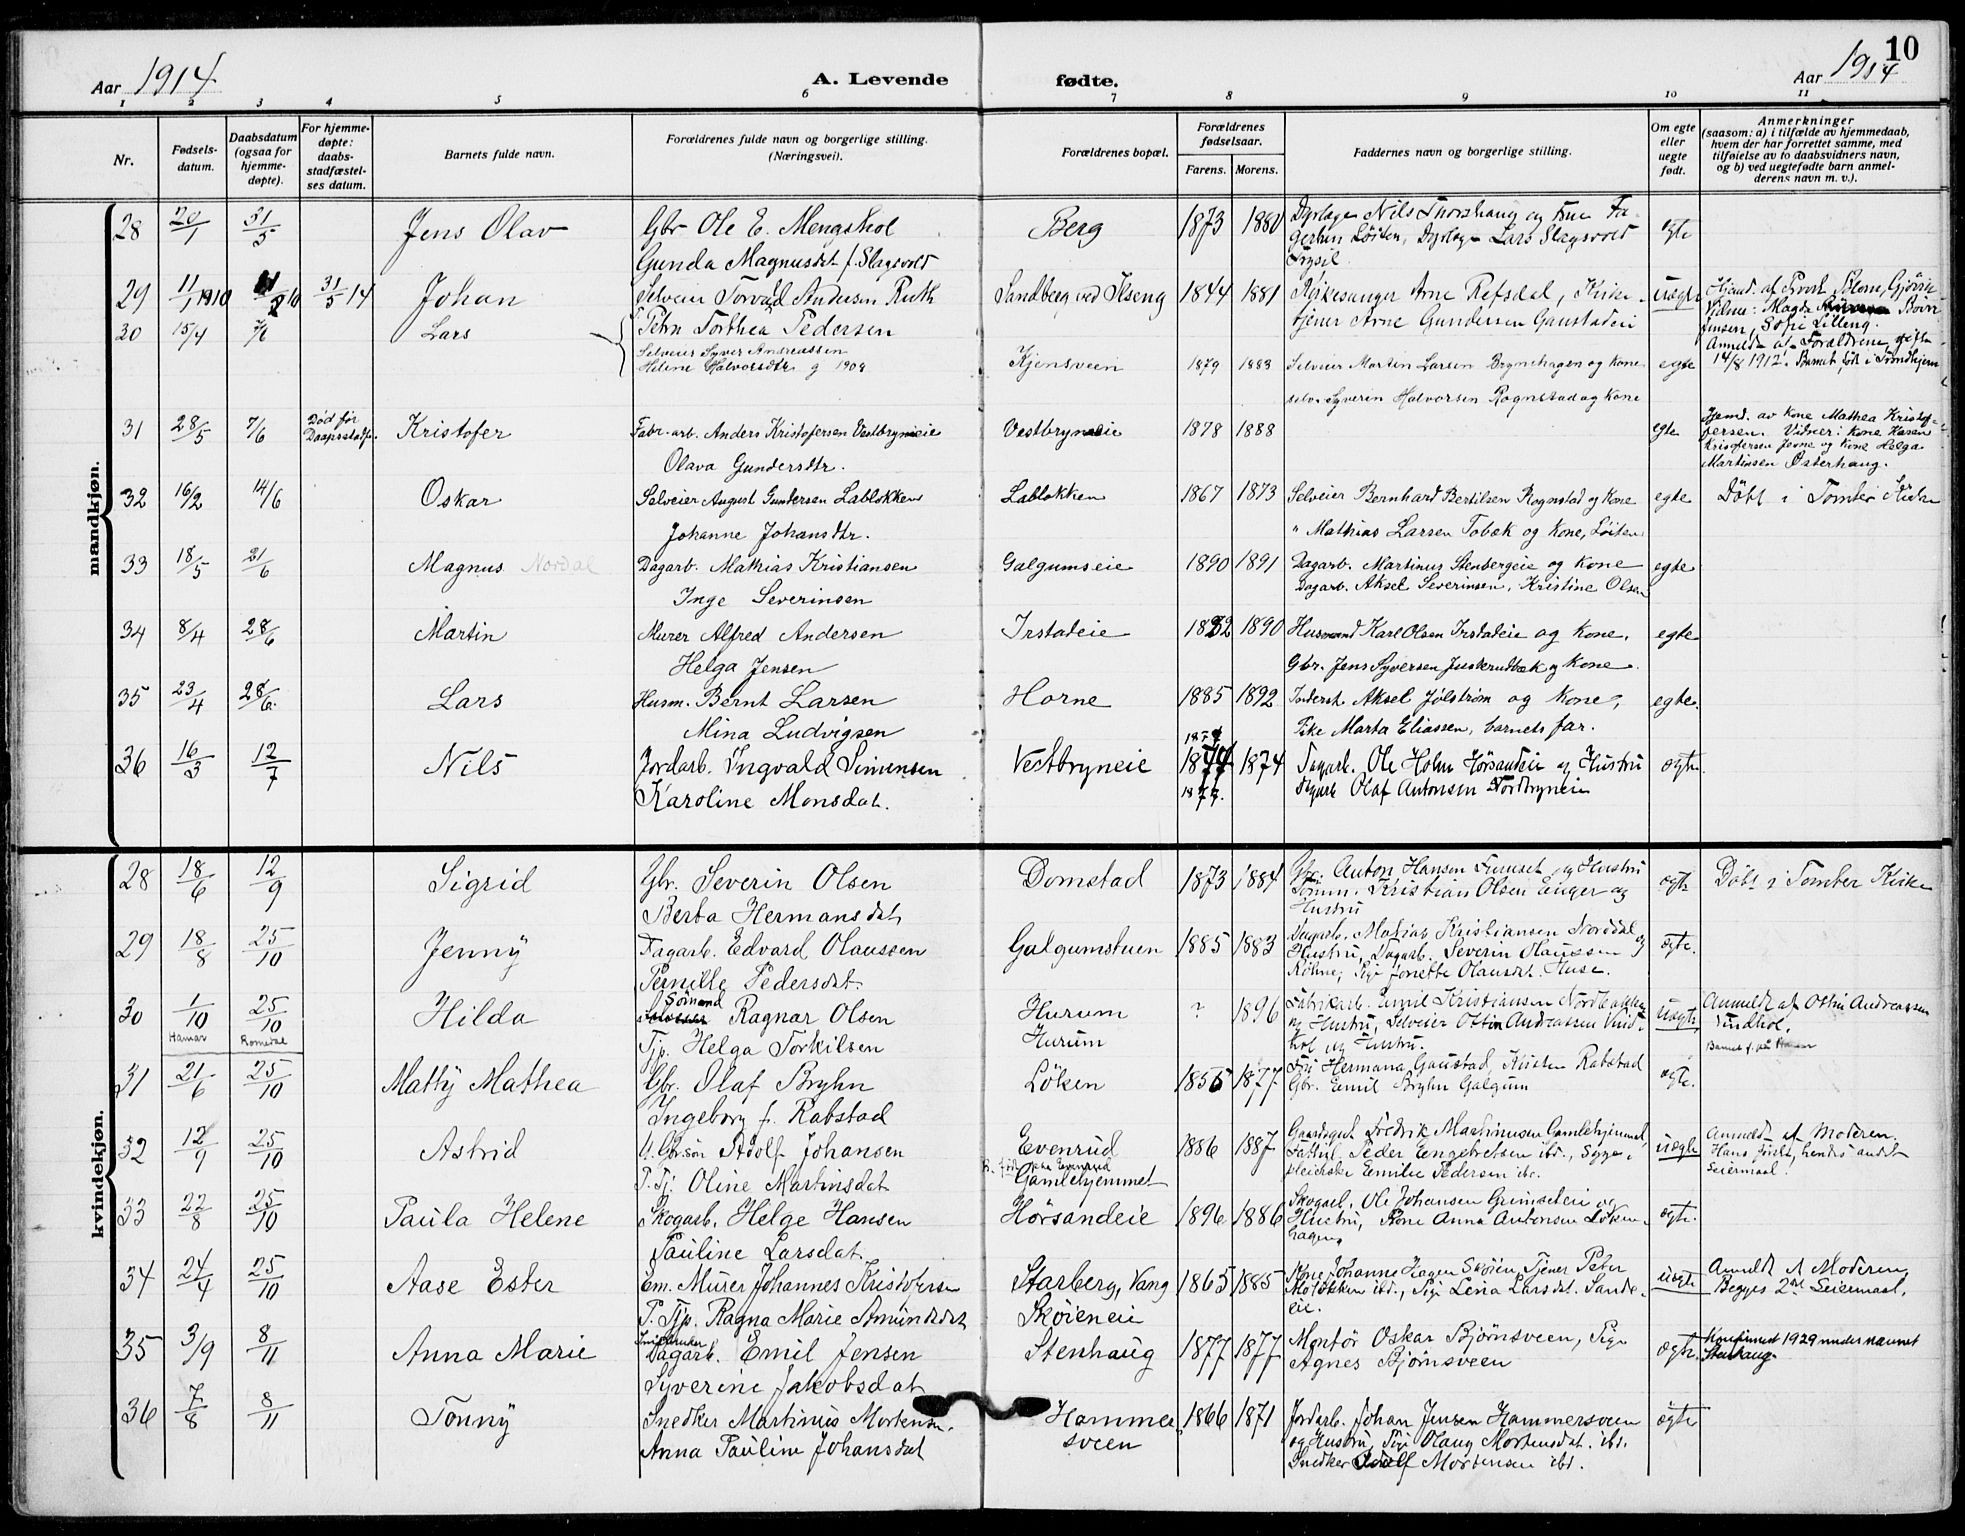 10
Aar 1914
A. Levende fødte.
Aar 1914
1 2 3 4 5 6 7 8 9 10 11
Nr.
Fødsels-
datum.
Daabsdatum
(ogsaa for
hjemme-
døpte).
For hjemme-
døpte:
daabs-
stadfæstel-
ses datum.
Barnets fulde navn.
Forældrenes fulde navn og borgerlige stilling.
(Næringsvei).
Forældrenes bopæl.
Forældrenes
fødselsaar.
Farens. Morens.
Faddernes navn og borgerlige stilling.
Om egte
eller
uegte
født.
Anmerkninger
(saasom: a) i tilfælde av hjemmedaab,
hvem der har forrettet samme, med
tilføielse av to daabsvidners navn,
og b) ved uegtefødte barn anmel-
derens navn m. v.).
mandkjøn.
28 20/1 31/5 Jens Olav Gbr Ole E. Mengshol Berg 1873 1880 Nils Thorshaug og
Løiten, Lars Slagsvold ægte
Gunda Magnusdat f. Slagsvold Trysil
29 11/1 1910 31/5 14 Johan Selveier Torvald Andersen Ruth Sandberg ved Ilseng 1844 1881 Kirkesanger Arne Refsdal, Kirke- uægte
Petra Dorthea Pedersen tjener Arne Gundersen Gaustadeie
Hjemd. af Provst Gjøvik
Vidner: Magda
Jensen, Sofie Lilleng.
Anmeldt af Forældrene, gift
14/8 1912. Barnet født i Trondhjem
30 15/4 7/6 Lars Selveier Syver Andreassen Kjensveen 1879 1883 Selveier Martin Larsen Brynihagen og Kone egte
Helene Halvorsdtr g 1909 selv. Syverin Halvorsen Rognstad og Kone
31 28/5 7/6 Død før
Daapsstadf. Kristofer Fabr. arb. Anders Kristofersen Vestbryneie Vestbryneie 1878 1888 egte
Olava Gundersdtr.
Hjemd. av Kone Mathea Kristof-
fersen. Vidner: Kone Karen
Kristofersen Jevne og Kone Helga
Martinsen Østerhaug.
32 16/2 14/6 Oskar Selveier August Gundersen Lablokken Lablokken 1867 1873 Selveier Bernhard Bertilsen Rognstad og Kone egte Døbt i Tomter Kirke
Johanne Johansdtr. " Mathias Larsen Tobæk og Kone, Løiten
33 18/5 21/6 Magnus Nordal Dagarb. Mathias Kristiansen Galgumseie 1890 1891 Dagarb. Martinus Stenbergeie og Kone egte
Inge Severinsen Dagarb. Aksel Severinsen, Kristine Olsen
34 8/4 28/6 Martin Murer Alfred Andersen Irstadeie 1882 1890 Husmand Karl Olsen Irstadeie og Kone. egte
Helga Jensen Gbr. Jens Syversen Juskerudbæk og Kone
35 23/4 28/6 Lars Husm. Bernt Larsen Horne 1885 1892 Aksel Jølstrøm og Kone, egte.
Mina Ludvigsen Pike Marta Eliassen, barnets far.
36 16/3 12/7 Nils Jordarb. Ingvald Simensen Vestbryneie 1874 Dagarb. Ole Holm Hørsandeie og Hustru ægte
Karoline Monsdat. 1877. Dagarb Olaf Antonsen Nordbryneie
kvindekjøn.
28 18/6 12/9 Sigrid Gbr. Severin Olsen Domstad 1873 1884 Gbr. Anton Hansen og Hustru ægte Døbt i Tomter Kirke
Berta Hermansdat Tømm. Kristian Olsen Enger og
Hustru
29 18/8 25/10 Jenny Dagarb. Edvard Olaussen Galgumstuen 1885 1883 Dagarb. Matias Kristiansen Norddal og ægte.
Pernille Pedersdat. Hustru, Dagarb. Severin Olaussen
Røhne, Pige Jonette Olausdat. Huse.
30 1/10 25/10 Hilda Sømand Ragnar Olsen Hurum ? 1896 Fabrikarb. Emil Kristiansen Nordbakken uægte
Hamar Romedal
Tjp. Helga Torkilsen Hurum og Hustru, Selveier Ottin Andreassen Vind-
hol og Hustru.
Anmeldt af Ottin Andreassen
Vindhol.
Barnet f. på Hamar
31 21/6 25/10 Matty Mathea Gbr. Olaf Bryhn Løken 1855 1877 Fru Hermana Gaustad, Rabstad ægte.
Ingeborg f. Rabstad Gbr. Emil Bryhn Galgum
32 12/9 25/10 Astrid U. Gbr.søn Adolf Johansen Evenrud 1886 1887 Gaardsgut Fredrik Martinusen Gamlehjemmet, uægte
P. Tj. Oline Martinsdat Gamlehjemmet Peder Engebretsen ibd., Syge-
pleierske Emilie Pedersen ibd.
Anmeldt af Moderen.
Hans første, hendes andet
Leiermaal.
33 22/8 25/10 Paula Helene Skogarb. Helge Hansen Hørsandeie 1896 1886 Skogarb. Ole Johansen Grimseteie og ægte.
Pauline Larsdat Hustru, Kone Anna Antonsen Løken-
hagen
34 24/4 25/10 Aase Ester Em. Murer Johannes Kristofersen Starberg, Vang 1865 1885 Kone Johanne Hagen Skøien, Tjener Peter uægte
P. Tjp. Ragna Marie Amundsdat Skøieneie ibd., Pige Lena Larsdat. Sande-
eie.
Anmeldt af Moderen,
Begges 2det Leiermaal.
35 3/9 8/11 Anna Marie Dagarb. Emil Jensen Stenhaug 1877 1877 Montør Oskar Bjørnsveen, Pige ægte.
Syverine Jakobsdat Agnes Bjørnsveen
Konfirmert 1929 under navnet
Stenhaug.
36 7/8 8/11 Tonny Snedker Martinus Mortensen. Hammer- 1866 1871 Jordarb. Johan Jensen Hammersveen ægte
Anna Pauline Johansdat sveen og Hustru, Pige Olaug Mortensdat. ibd.
Snedker Adolf Mortensen ibd.